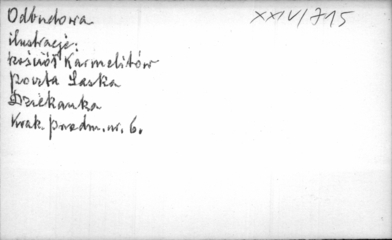 Odbudowa XXIV/715
ilustracje:
kościół Karmelitów
poczta Saska
Dziekanka
Krak. przedm. nr. 6.